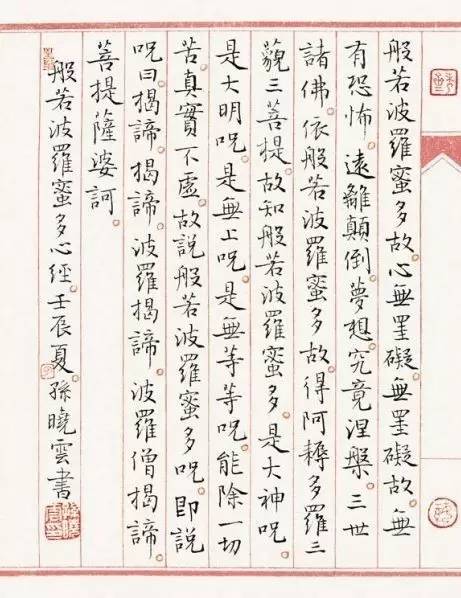 般若波羅蜜多故心無罣礙無罣礙故無
有恐怖遠離顛倒夢想究竟涅槃三世
諸佛依般若波羅蜜多故得阿耨多羅三
藐三菩提故知般若波羅蜜多是大神呪
是大明呪是無上呪是無等等呪能除一切
苦真實不虛故說般若波羅蜜多呪即說
呪曰揭諦揭諦波羅揭諦波羅僧揭諦
菩提薩婆訶
般若波羅蜜多心經壬辰夏孫曉雲書